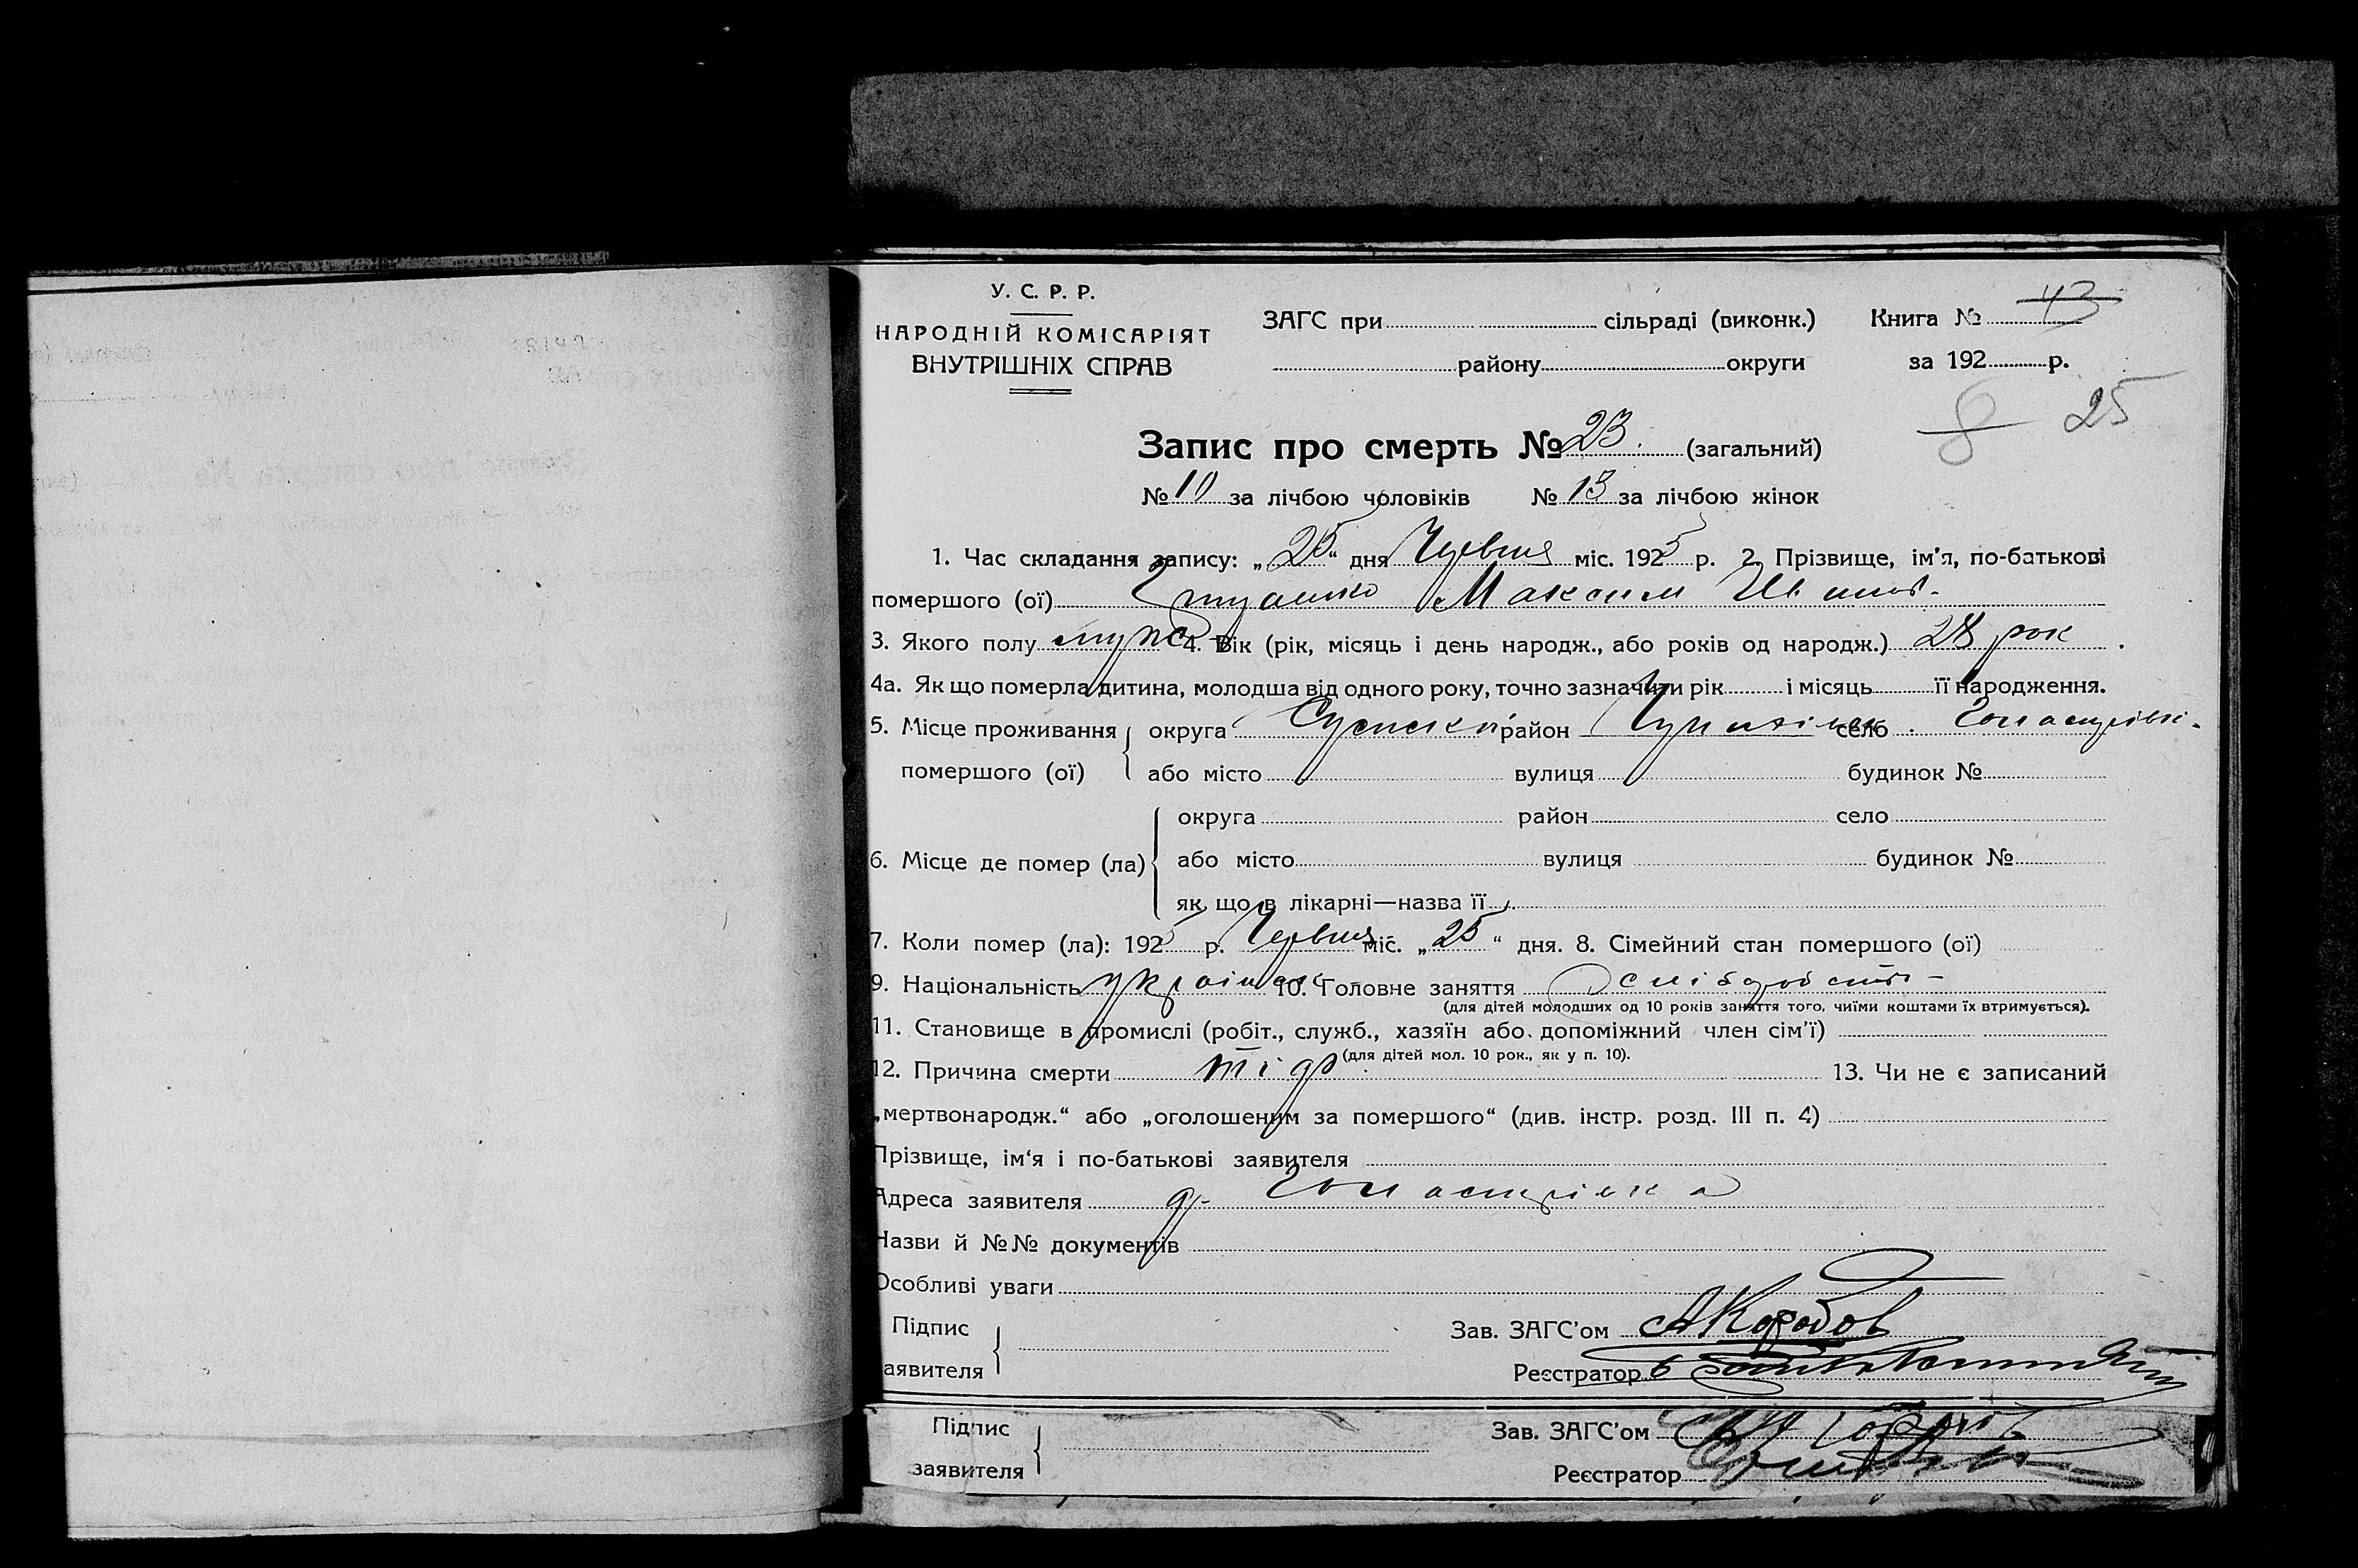 У. С. Р. Р.
НАРОДНІЙ КОМІСАРІЯТ
ВНУТРІШНІХ СПРАВ
ЗАГС при сільраді (виконк.)
району округи
Книга № 43
за 192 р.
8 25
Запис про смерть № 23. (загальний)
№ 10 за лічбою чоловіків № 13 за лічбою жінок
1. Час складання запису: „25“ дня Червня міс. 1925 р. 2. Прізвище, ім'я, по-батькові
помершого (ої) Максим
3. Якого полу 4. Вік (рік, місяць і день народж., або років од народж.) 28 рок .
4а. Як що померла дитина, молодша від одного року, точно зазначити рік і місяць її народження.
5. Місце проживання округа Сумськ район село
помершого (ої) або місто вулиця будинок №
округа район село
6. Місце де помер (ла) або місто вулиця будинок №
як що в лікарні—назва її
7. Коли помер (ла): 1925 р. Червня міс. „25“ дня. 8. Сімейний стан помершого (ої)
9. Національність україн 10. Головне заняття
(для дітей молодших од 10 років заняття того, чиїми коштами їх втримується).
11. Становище в промислі (робіт., служб., хазяїн або допоміжний член сім'ї)
(для дітей мол. 10 рок., як у п. 10).
12. Причина смерти 13. Чи не є записаний
„мертвонародж.“ або „оголошеним за помершого“ (див. інстр. розд. III п. 4)
Прізвище, ім'я і по-батькові заявителя
Адреса заявителя
Назви й №№ документів
Особливі уваги
Підпис
аявителя
Зав. ЗАГС'ом АКоробов
Реєстратор
Підпис
заявителя
Зав. ЗАГС'ом
Реєстратор